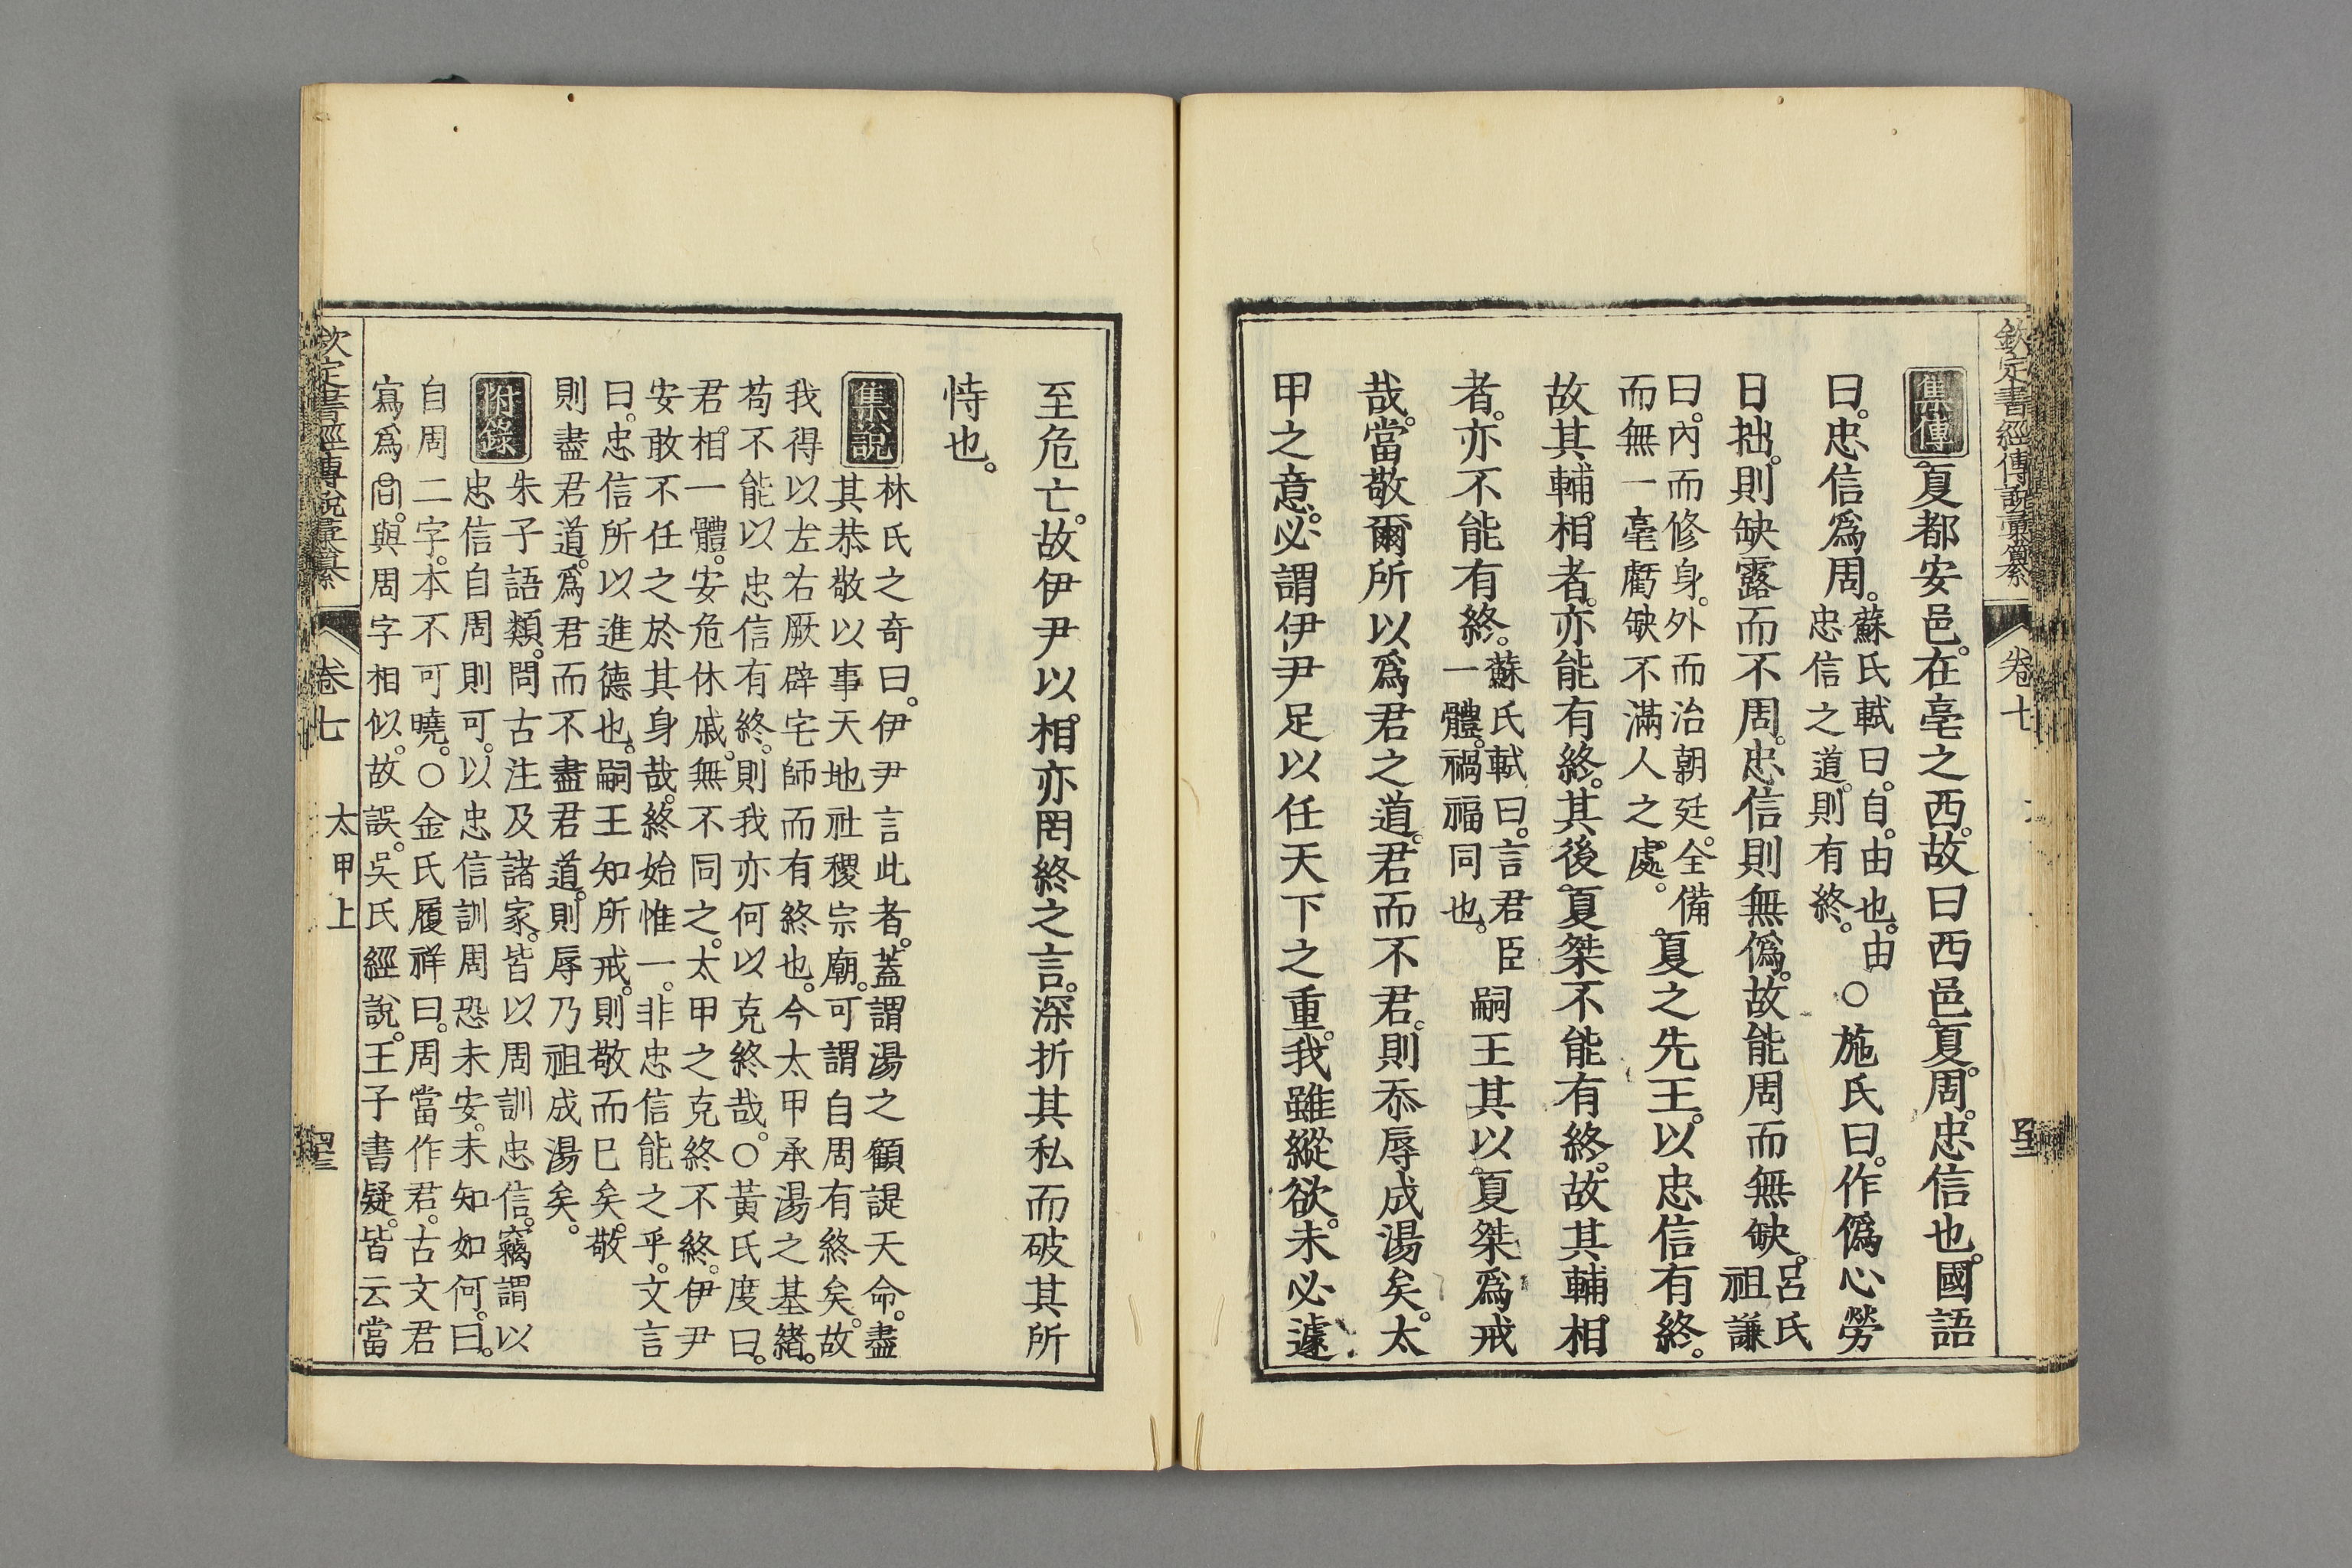 欽定書經傳說彙纂 卷七
集傳 夏都安邑。在亳之西。故曰西邑夏。周。忠信也。國語
曰。忠信爲周。蘇氏軾曰。自。由也。由忠信之道。則有終。○施氏曰。作僞心勞
日拙。則缺露而不周。忠信則無僞。故能周而無缺。呂氏祖謙
曰。內而修身。外而治朝廷。全備而無一毫虧缺不滿人之處。夏之先王。以忠信有終。
故其輔相者。亦能有終。其後夏桀不能有終。故其輔相
者。亦不能有終。蘇氏軾曰。言君臣一體。禍福同也。嗣王其以夏桀爲戒
哉。當敬爾所以爲君之道。君而不君。則忝辱成湯矣。太
甲之意。必謂伊尹足以任天下之重。我雖縱欲。未必遽
至危亡。故伊尹以相亦罔終之言。深折其私而破其所
恃也。
集說 林氏之奇曰。伊尹言此者。蓋謂湯之顧諟天命。盡
其恭敬以事天地社稷宗廟。可謂自周有終矣。故
我得以左右厥辟宅師而有終也。今太甲承湯之基緒。
苟不能以忠信有終。則我亦何以克終哉。○黃氏度曰。
君相一體。安危休戚。無不同之。太甲之克終不終。伊尹
安敢不任之於其身哉。終始惟一。非忠信能之乎。文言
曰。忠信所以進德也。嗣王知所戒。則敬而已矣。敬
則盡君道。爲君而不盡君道。則辱乃祖成湯矣。
附錄 朱子語類。問古注及諸家。皆以周訓忠信。竊謂以
忠信自周則可。以忠信訓周恐未安。未知如何。曰。
自周二字。本不可曉。○金氏履祥曰。周當作君。古文君
寫爲𠱭。與周字相似。故誤。吳氏經說。王子書疑。皆云當
欽定書經傳說彙纂 卷七 太甲上